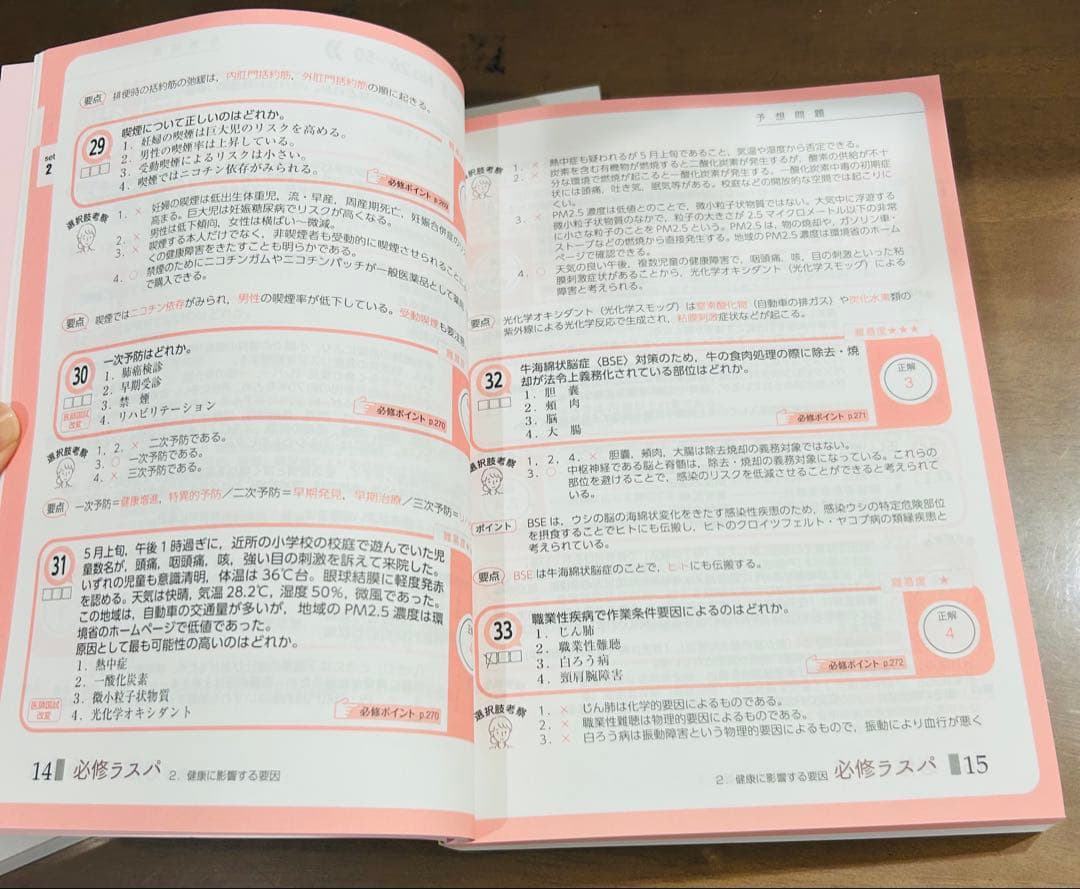 要点 排便時の括約筋の弛緩は，内肛門括約筋，外肛門括約筋の順に起きる。
set
2
29 喫煙について正しいのはどれか。
1．妊婦の喫煙は巨大児のリスクを高める。
2．男性の喫煙率は上昇している。
3．受動喫煙によるリスクは小さい。
4．喫煙ではニコチン依存がみられる。
必修ポイント p.269
選択肢考察
1．× 妊婦の喫煙は低出生体重児，流・早産，周産期死亡，妊娠合併症の
高まる。巨大児は妊娠糖尿病でリスクが高くなる。
2．× 男性は低下傾向，女性は横ばい〜微減。
3．× 喫煙する本人だけでなく，非喫煙者も受動的に喫煙させられること
くの健康障害をきたすことも明らかである。
4．○ 禁煙のためにニコチンガムやニコチンパッチが一般医薬品として薬局
で購入できる。
要点 喫煙ではニコチン依存がみられ，男性の喫煙率が低下している。受動喫煙も要注意
30 一次予防はどれか。
1．肺癌検診
2．早期受診
3．禁 煙
4．リハビリテーション
医師国試
改変
必修ポイント p.270
選択肢考察
1，2．× 二次予防である。
3．○ 一次予防である。
4．× 三次予防である。
要点 一次予防＝健康増進，特異的予防／二次予防＝早期発見，早期治療／三次予防＝
難易度
31 5月上旬，午後1時過ぎに，近所の小学校の校庭で遊んでいた児
童数名が，頭痛，咽頭痛，咳，強い目の刺激を訴えて来院した。
いずれの児童も意識清明，体温は36℃台。眼球結膜に軽度発赤
を認める。天気は快晴，気温28.2℃，湿度50%，微風であった。
この地域は，自動車の交通量が多いが，地域のPM2.5濃度は環
境省のホームページで低値であった。
原因として最も可能性の高いのはどれか。
1．熱中症
2．一酸化炭素
3．微小粒子状物質
4．光化学オキシダント
医師国試
改変
必修ポイント p.270
14 必修ラスパ 2．健康に影響する要因
予想問題
選択肢考察
1．× 熱中症も疑われるが5月上旬であること，気温や湿度から否定できる。
2．× 炭素を含む有機物が燃焼すると二酸化炭素が発生するが，酸素の供給が不十
分な環境で燃焼が起こると一酸化炭素が発生する。一酸化炭素中毒の初期症
状には頭痛，吐き気，眠気等がある。校庭などの開放的な空間では起こりに
くい。
3．× PM2.5濃度は低値とのことで，微小粒子状物質ではない。大気中に浮遊する
微小粒子状物質のなかで，粒子の大きさが2.5マイクロメートル以下の非常
に小さな粒子のことをPM2.5という。PM2.5は，物の焼却や，ガソリン車・
ストーブなどの燃焼から直接発生する。地域のPM2.5濃度は環境省のホーム
ページで確認できる。
4．○ 天気の良い午後，複数児童の健康障害で，咽頭痛，咳，目の刺激といった粘
膜刺激症状があることから，光化学オキシダント（光化学スモッグ）による
障害と考えられる。
要点 光化学オキシダント（光化学スモッグ）は窒素酸化物（自動車の排ガス）や炭化水素類の
紫外線による光化学反応で生成され，粘膜刺激症状などが起こる。
難易度★★★
32 牛海綿状脳症〈BSE〉対策のため，牛の食肉処理の際に除去・焼
却が法令上義務化されている部位はどれか。
1．胆 嚢
2．頰 肉
3．脳
4．大 腸
正解
3
必修ポイント p.271
選択肢考察
1，2，4．× 胆嚢，頰肉，大腸は除去焼却の義務対象ではない。
3．○ 中枢神経である脳と脊髄は，除去・焼却の義務対象になっている。これらの
部位を避けることで，感染のリスクを低減させることができると考えられて
いる。
ポイント BSEは，ウシの脳の海綿状変化をきたす感染性疾患のため，感染ウシの特定危険部位
を摂食することでヒトにも伝搬し，ヒトのクロイツフェルト・ヤコブ病の類縁疾患と
考えられている。
要点 BSEは牛海綿状脳症のことで，ヒトにも伝搬する。
難易度 ★
33 職業性疾病で作業条件要因によるのはどれか。
1．じん肺
2．職業性難聴
3．白ろう病
4．頸肩腕障害
正解
4
必修ポイント p.272
選択肢考察
1．× じん肺は化学的要因によるものである。
2．× 職業性難聴は物理的要因によるものである。
3．× 白ろう病は振動障害という物理的要因によるもので，振動により血行が悪く
2．健康に影響する要因 必修ラスパ 15